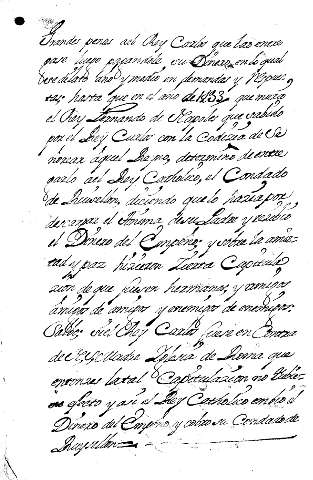 Grandes penas del Rey Carlos que las entre
gase luego pagandole su Dinero en lo qual
se dilato uno y medio en demandas y Respues
tas, hasta que en el año de 1493 que murio
el Rey Fernando de Napoles que sabido
por el Rey Carlos con la Codizia de Se
ñorear aquel Reyno, determino de entre
garlo al Rey Catholico, el Condado
de Ruysellon, diciendo que lo hazia por
descargar el Anima de su Padre y recivio
el Dinero del Empeño; y sobre la amis
tad y paz hizieron Zierta Capitula
zion de que fuesen hermanos, y amigos
amigos de amigos y enemigos de enemigos,
Salbo si el Rey Carlos fuese en Contra
de la Madre Yglesia de Roma que
entonzes la tal Capitulazion no Valie
efecto y asi el Rey Catholico embio el
Dinero del Empeño y cobro su Condado de
Ruysellon